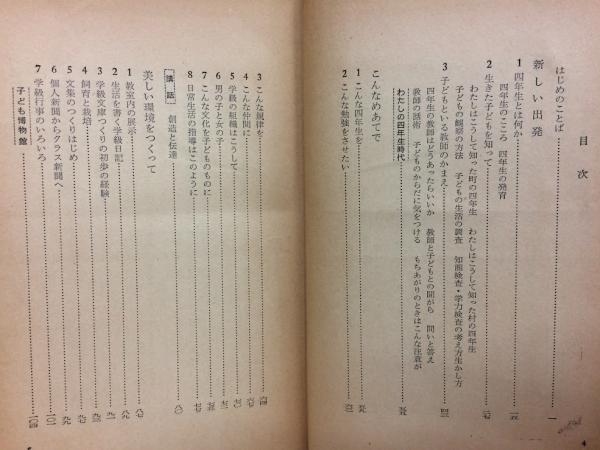 目次
はじめのことば
一
新しい出発
1 四年生とは何か
五
四年生のこころ 四年生の発育
2 生きた子どもを知って
わたしはこうして知った町の四年生 わたしはこうして知った村の四年生
子どもの観察の方法 子どもの生活の調査 知能検査・学力検査の考え方生かし方
3 子どもといる教師のかまえ
四年生の教師はどうあったらいいか 教師と子どもとの間がら 問いと答え
教師の話術 子どものからだに気をつける もちあがりのときはこんな注意が
わたしの四年生時代
こんなめあてで
1 こんな四年生を
2 こんな勉強をさせたい
4
3 こんな規律を
4 こんな仲間に
5 学級の組織はこうして
6 男の子と女の子
7 こんな文化を子どものものに
8 日常生活の指導はこのように
講話 創造と伝達
美しい環境をつくって
1 教室内の展示
2 生活を書く学級日記
3 学級文庫づくりの初歩の経験
4 飼育と栽培
5 文集のつくりはじめ
6 個人新聞からクラス新聞へ
7 学級行事のいろいろ
子ども博物館
一〇四